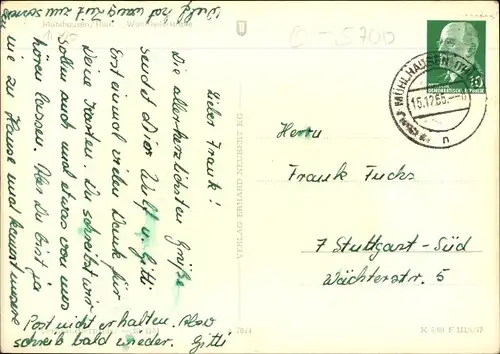 Mühlhausen/Thür.
Lieber Frank!
Die allerherzlichsten Grüße
sendet Dir Wulf u. Gitti
Erst einmal vielen Dank für
Deine Karten. Du schreibst wir
sollen auch mal etwas von uns
hören lassen. Aber Du bist ja
nie zu Hause und kannst unsere
Post nicht erhalten. Also
schreib bald wieder. Gitti
Wulf hat wenig Zeit zum
VERLAG ERHARD NEUBERT KG
MÜHLHAUSEN (THÜR)
15.12.65
n
DEUTSCHE DEMOKRATISCHE REPUBLIK
Herrn
Frank Fuchs
7 Stuttgart-Süd
Wächterstr. 5